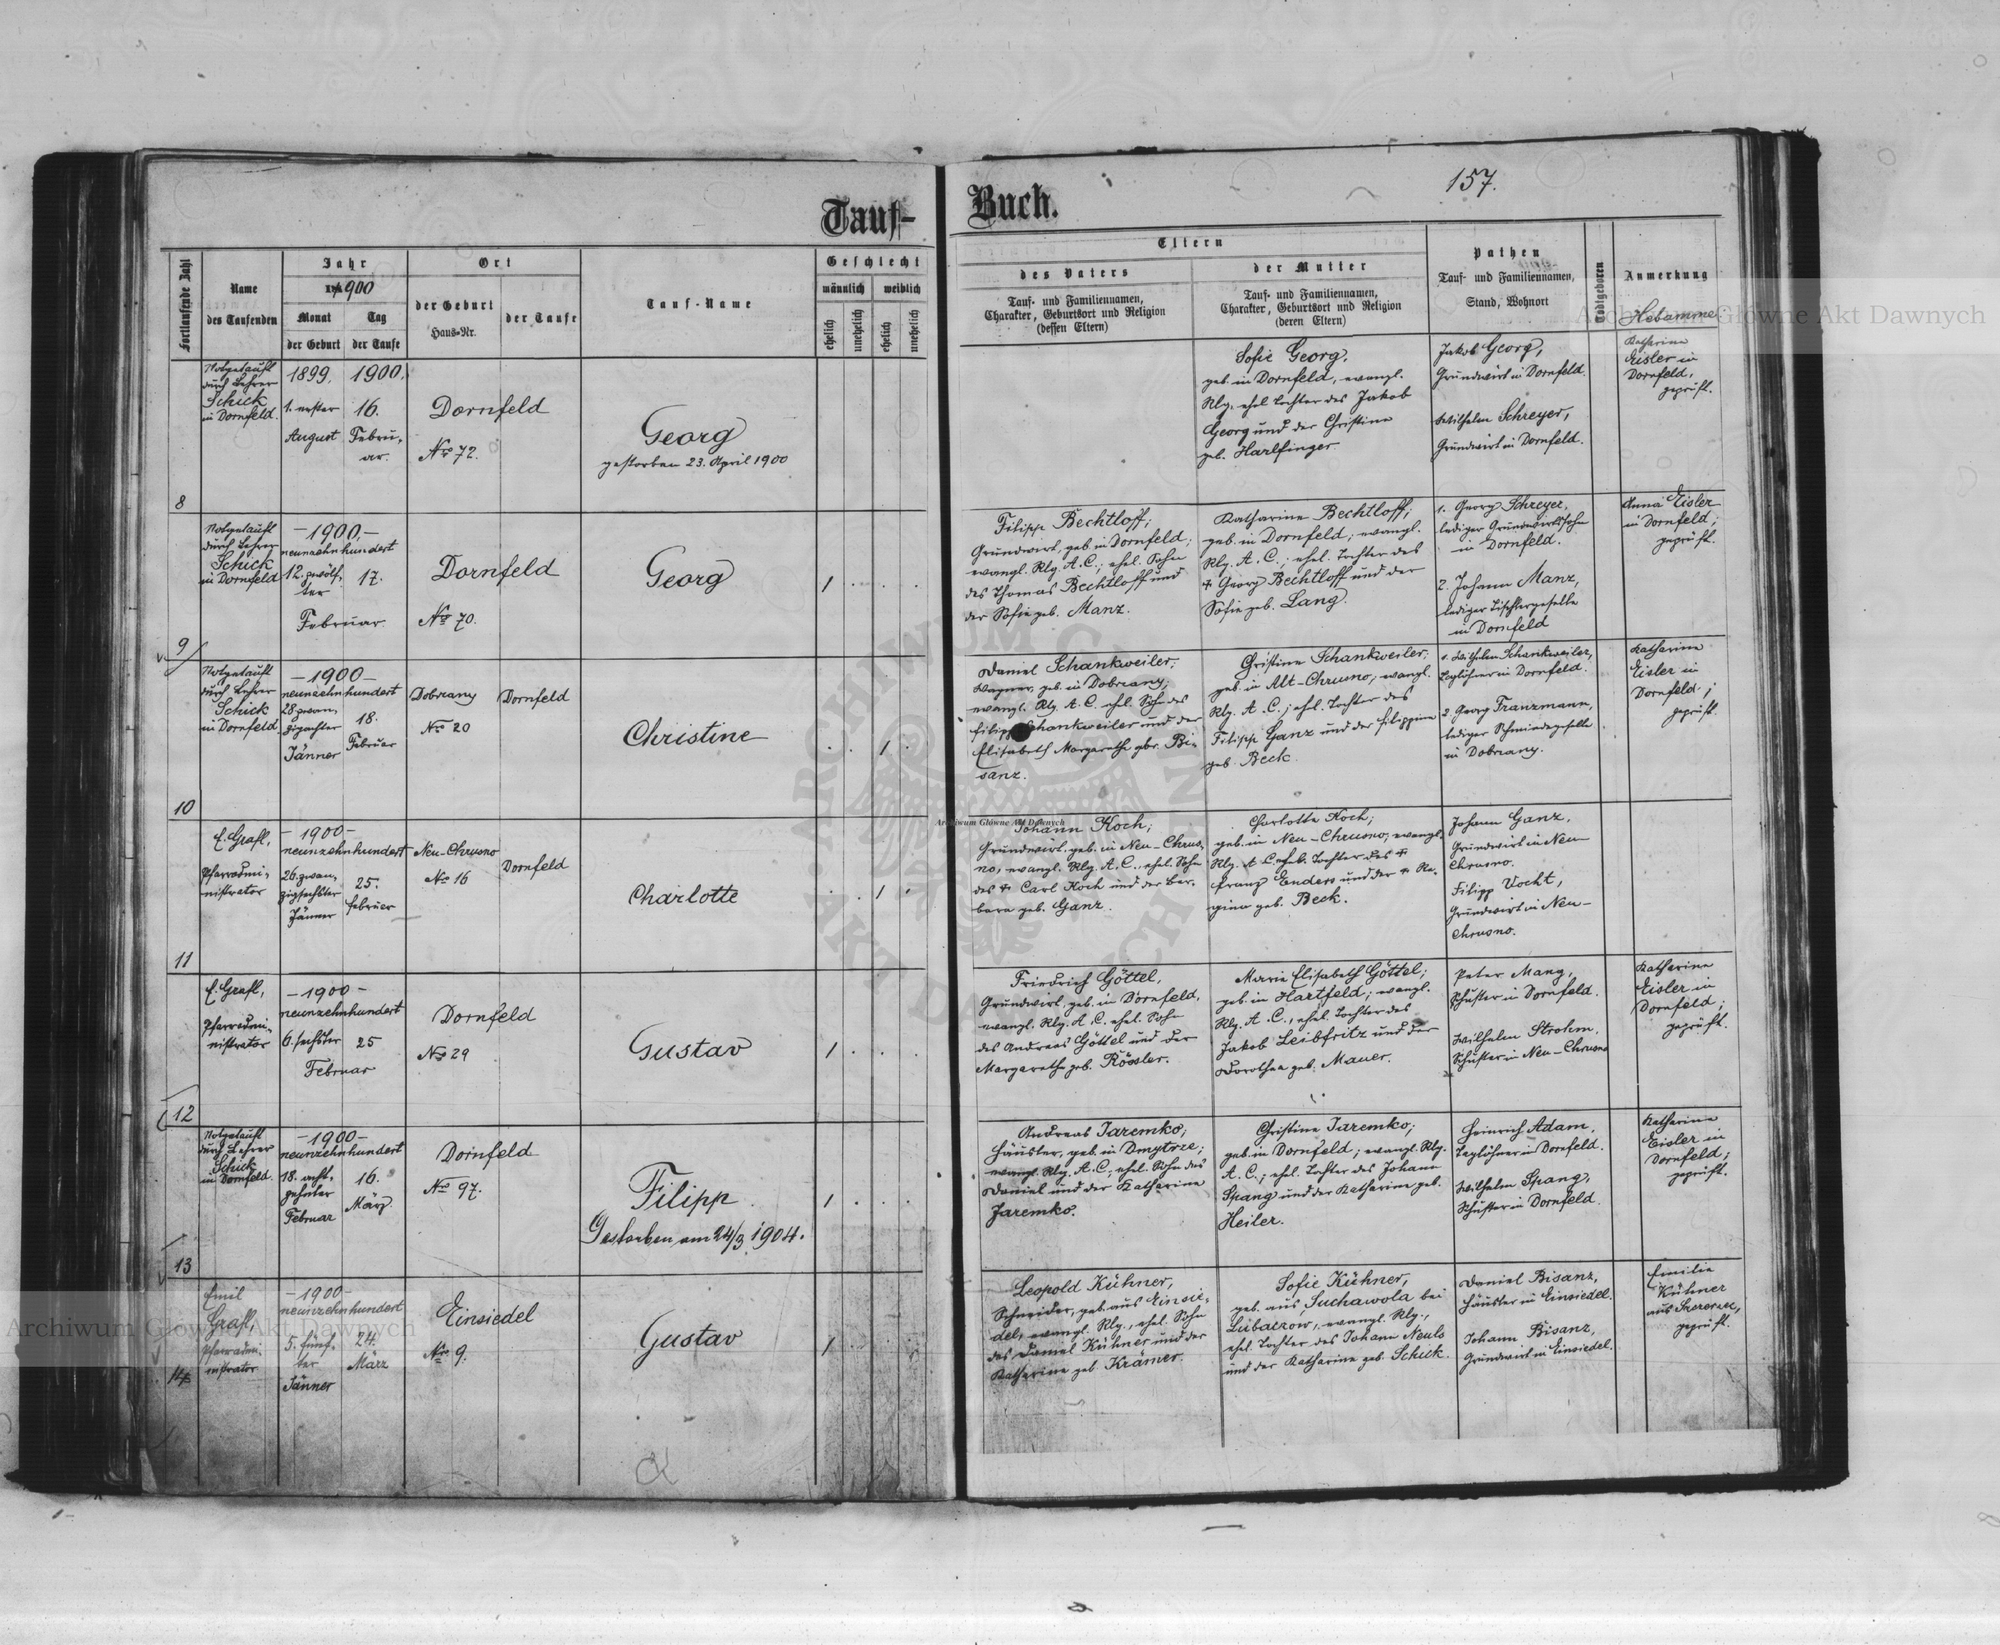 157.
Tauf-Buch.
Fortlaufende Zahl
Name
des Taufenden
Jahr
1900
Monat
der Geburt
Tag
der Taufe
Ort
der Geburt
Haus-Nr.
der Taufe
Tauf-Name
Geschlecht
männlich
weiblich
ehelich
unehelich
ehelich
unehelich
Eltern
des Vaters
Tauf- und Familiennamen,
Charakter, Geburtsort und Religion
(dessen Eltern)
der Mutter
Tauf- und Familiennamen,
Charakter, Geburtsort und Religion
(deren Eltern)
Pathen
Tauf- und Familiennamen,
Stand, Wohnort
Todtgeboren
Anmerkung
Hebamme
8
Notgetauft
durch Lehrer
Schick
in Dornfeld.
1899.
1. erster
August
1900.
16.
Febru-
ar.
Dornfeld
No 72.
Georg
gestorben 23. April 1900
Sofie Georg,
geb. in Dornfeld, evangl.
Rlg. ehel. Tochter des Jakob
Georg und der Christine
geb. Harlfinger
Jakob Georg,
Grundwirt in Dornfeld.
Wilhelm Schreyer,
Grundwirt in Dornfeld.
Katharina
Eisler in
Dornfeld,
geprüft.
9
Notgetauft
durch Lehrer
Schick
in Dornfeld
-1900.-
neunzehnhundert
12. zwölf-
ter
Februar.
17.
Dornfeld
No 70.
Georg
1
Filipp Bechtloff;
Grundwirt, geb. in Dornfeld;
evangl. Rlg. A. C.; ehel. Sohn
des Thomas Bechtloff und
der Sofie geb. Manz.
Katharine Bechtloff;
geb. in Dornfeld; evangl.
Rlg. A. C.; ehel. Tochter des
+ Georg Bechtloff und der
Sofie geb. Lang.
1. Georg Schreyer,
lediger Grundwirtssohn
in Dornfeld.
2. Johann Manz,
lediger Tischlergeselle
in Dornfeld
Anna Eisler
in Dornfeld;
geprüft.
10
Notgetauft
durch Lehrer
Schick
in Dornfeld
-1900-
neunzehnhundert
28. zwan-
zigachter
Jänner
18.
Februar
Dobrzany
No 20
Dornfeld
Christine
1
Daniel Schankweiler;
Wagner, geb. in Dobrzany;
evangl. Rlg. A. C. ehel. Sohn des
Filipp Schankweiler und der
Elisabeth Margarethe gbr. Bi-
sanz.
Christine Schankweiler;
geb. in Alt-Chrusno, evangl.
Rlg. A. C.; ehel. Tochter des
Filipp Ganz und der Filippine
geb. Beck.
1. Wilhelm Schankweiler,
Taglöhner in Dornfeld.
2. Georg Franzmann,
lediger Schmiedegeselle
in Dobrzany.
Katharina
Eisler in
Dornfeld;
geprüft.
11
E. Grafl,
Pfarradmi-
nistrator
-1900-
neunzehnhundert
26. zwan-
zigsechster
Jänner
25.
Februar
Neu-Chrusno
No 16
Dornfeld
Charlotte
1
Johann Koch;
Grundwirt, geb. in Neu-Chrus-
no, evangl. Rlg. A. C., ehel. Sohn
des + Carl Koch und der Bar-
bara geb. Ganz.
Charlotte Koch;
geb. in Neu-Chrusno; evangl.
Rlg. A. C. ehel. Tochter des +
Franz Enders und der + Re-
gina geb. Beck.
Johann Ganz,
Grundwirt in Neu
Chrusno.
Filipp Vocht,
Grundwirt in Neu-
Chrusno.
12
E. Grafl,
Pfarradmi-
nistrator
-1900-
neunzehnhundert
6. sechster
Februar
25
Dornfeld
No 29
Gustav
1
Friedrich Göttel,
Grundwirt, geb. in Dornfeld,
evangl. Rlg. A. C. ehel. Sohn
des Andreas Göttel und der
Margarethe geb. Rössler.
Marie Elisabeth Göttel;
geb. in Hartfeld; evangl.
Rlg. A. C., ehel. Tochter des
Jakob Leibfritz und der
Dorothea geb. Mauer.
Peter Mang,
Schuster in Dornfeld.
Wilhelm Strohm,
Schuster in Neu-Chrusno
Katharina
Eisler in
Dornfeld;
geprüft.
13
Notgetauft
durch Lehrer
Schick
in Dornfeld.
-1900-
neunzehnhundert
18. acht-
zehnter
Februar
16.
März
Dornfeld
No 97.
Filipp
Gestorben am 24/3 1904.
1
Andreas Jaremko;
Häusler, geb. in Dmytrze;
evangl. Rlg. A. C.; ehel. Sohn des
Daniel und der Katharina
Jaremko.
Christine Jaremko;
geb. in Dornfeld; evangl. Rlg.
A. C.; ehel. Tochter des Johann
Spang und der Katharina geb.
Heiler.
Heinrich Adam,
Taglöhner in Dornfeld.
Wilhelm Spang,
Schuster in Dornfeld.
Katharina
Eisler in
Dornfeld;
geprüft.
14
Emil
Grafl,
Pfarradmi-
nistrator
-1900-
neunzehnhundert
5. fünf-
ter
Jänner
24.
März
Einsiedel
No 9.
Gustav
1
Leopold Kühner,
Schneider, geb. aus Einsie-
del, evangl. Rlg., ehel. Sohn
des Daniel Kühner und der
Katharina geb. Krämer.
Sofie Kühner,
geb. aus Suchawola bei
Lubaczow, evangl. Rlg.,
ehel. Tochter des Johann Neuls
und der Katharina geb. Schick.
Daniel Bisanz,
Häusler in Einsiedel.
Johann Bisanz,
Grundwirt in Einsiedel.
Emilie
Kühner
aus Szczerzec,
geprüft.
Archiwum Główne Akt Dawnych